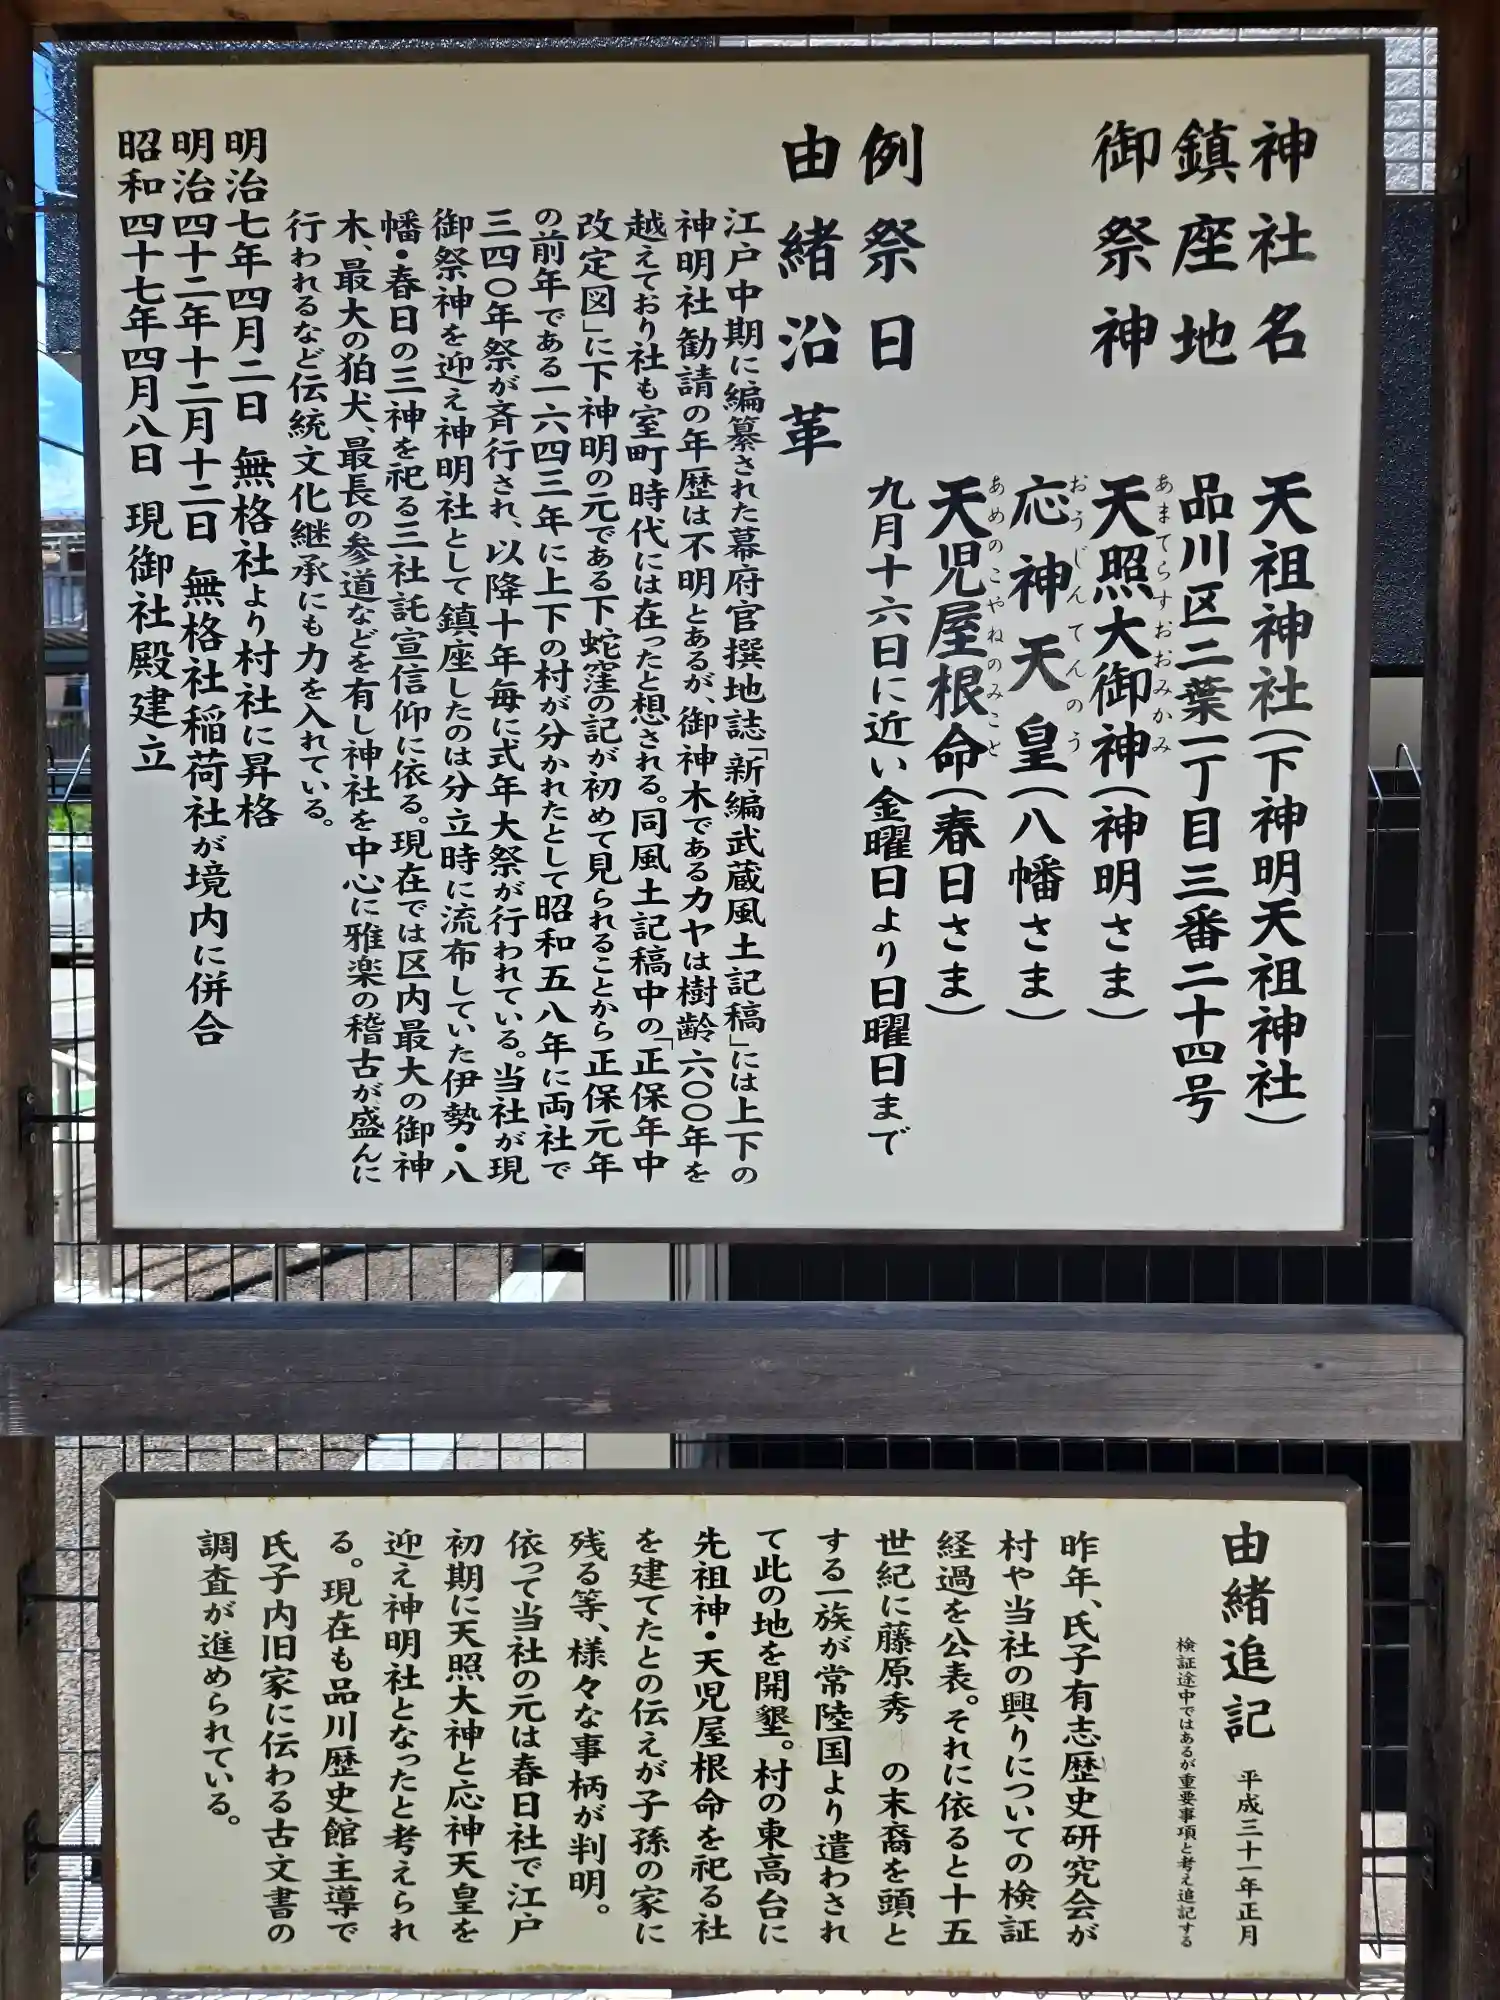 神社名　天祖神社(下神明天祖神社)
鎮座地　品川区二葉一丁目三番二十四号
御祭神　天照大御神(神明さま)
あまてらすおおみかみ
応神天皇(八幡さま)
おうじんてんのう
天児屋根命(春日さま)
あめのこやねのみこと
例祭日　九月十六日に近い金曜日より日曜日まで
由緒沿革
江戸中期に編纂された幕府官撰地誌「新編武蔵風土記稿」には上下の
神明社勧請の年歴は不明とあるが、御神木であるカヤは樹齢六〇〇年を
越えており社も室町時代には在ったと想される。同風土記稿中の「正保年中
改定図」に下神明の元である下蛇窪の記が初めて見られることから正保元年
の前年である一六四三年に上下の村が分かれたとして昭和五八年に両社で
三四〇年祭が斉行され、以降十年毎に式年大祭が行われている。当社が現
御祭神を迎え神明社として鎮座したのは分立時に流布していた伊勢・八
幡・春日の三神を祀る三社託宣信仰に依る。現在では区内最大の御神
木、最大の狛犬、最長の参道などを有し神社を中心に雅楽の稽古が盛んに
行われるなど伝統文化継承にも力を入れている。
明治七年四月二日　無格社より村社に昇格
明治四十二年十二月十二日　無格社稲荷社が境内に併合
昭和四十七年四月八日　現御社殿建立
由緒追記　平成三十一年正月
検証途中ではあるが重要事項と考え追記する
昨年、氏子有志歴史研究会が
村や当社の興りについての検証
経過を公表。それに依ると十五
世紀に藤原秀　の末裔を頭と
する一族が常陸国より遣わされ
て此の地を開墾。村の東高台に
先祖神・天児屋根命を祀る社
を建てたとの伝えが子孫の家に
残る等、様々な事柄が判明。
依って当社の元は春日社で江戸
初期に天照大神と応神天皇を
迎え神明社となったと考えられ
る。現在も品川歴史館主導で
氏子内旧家に伝わる古文書の
調査が進められている。